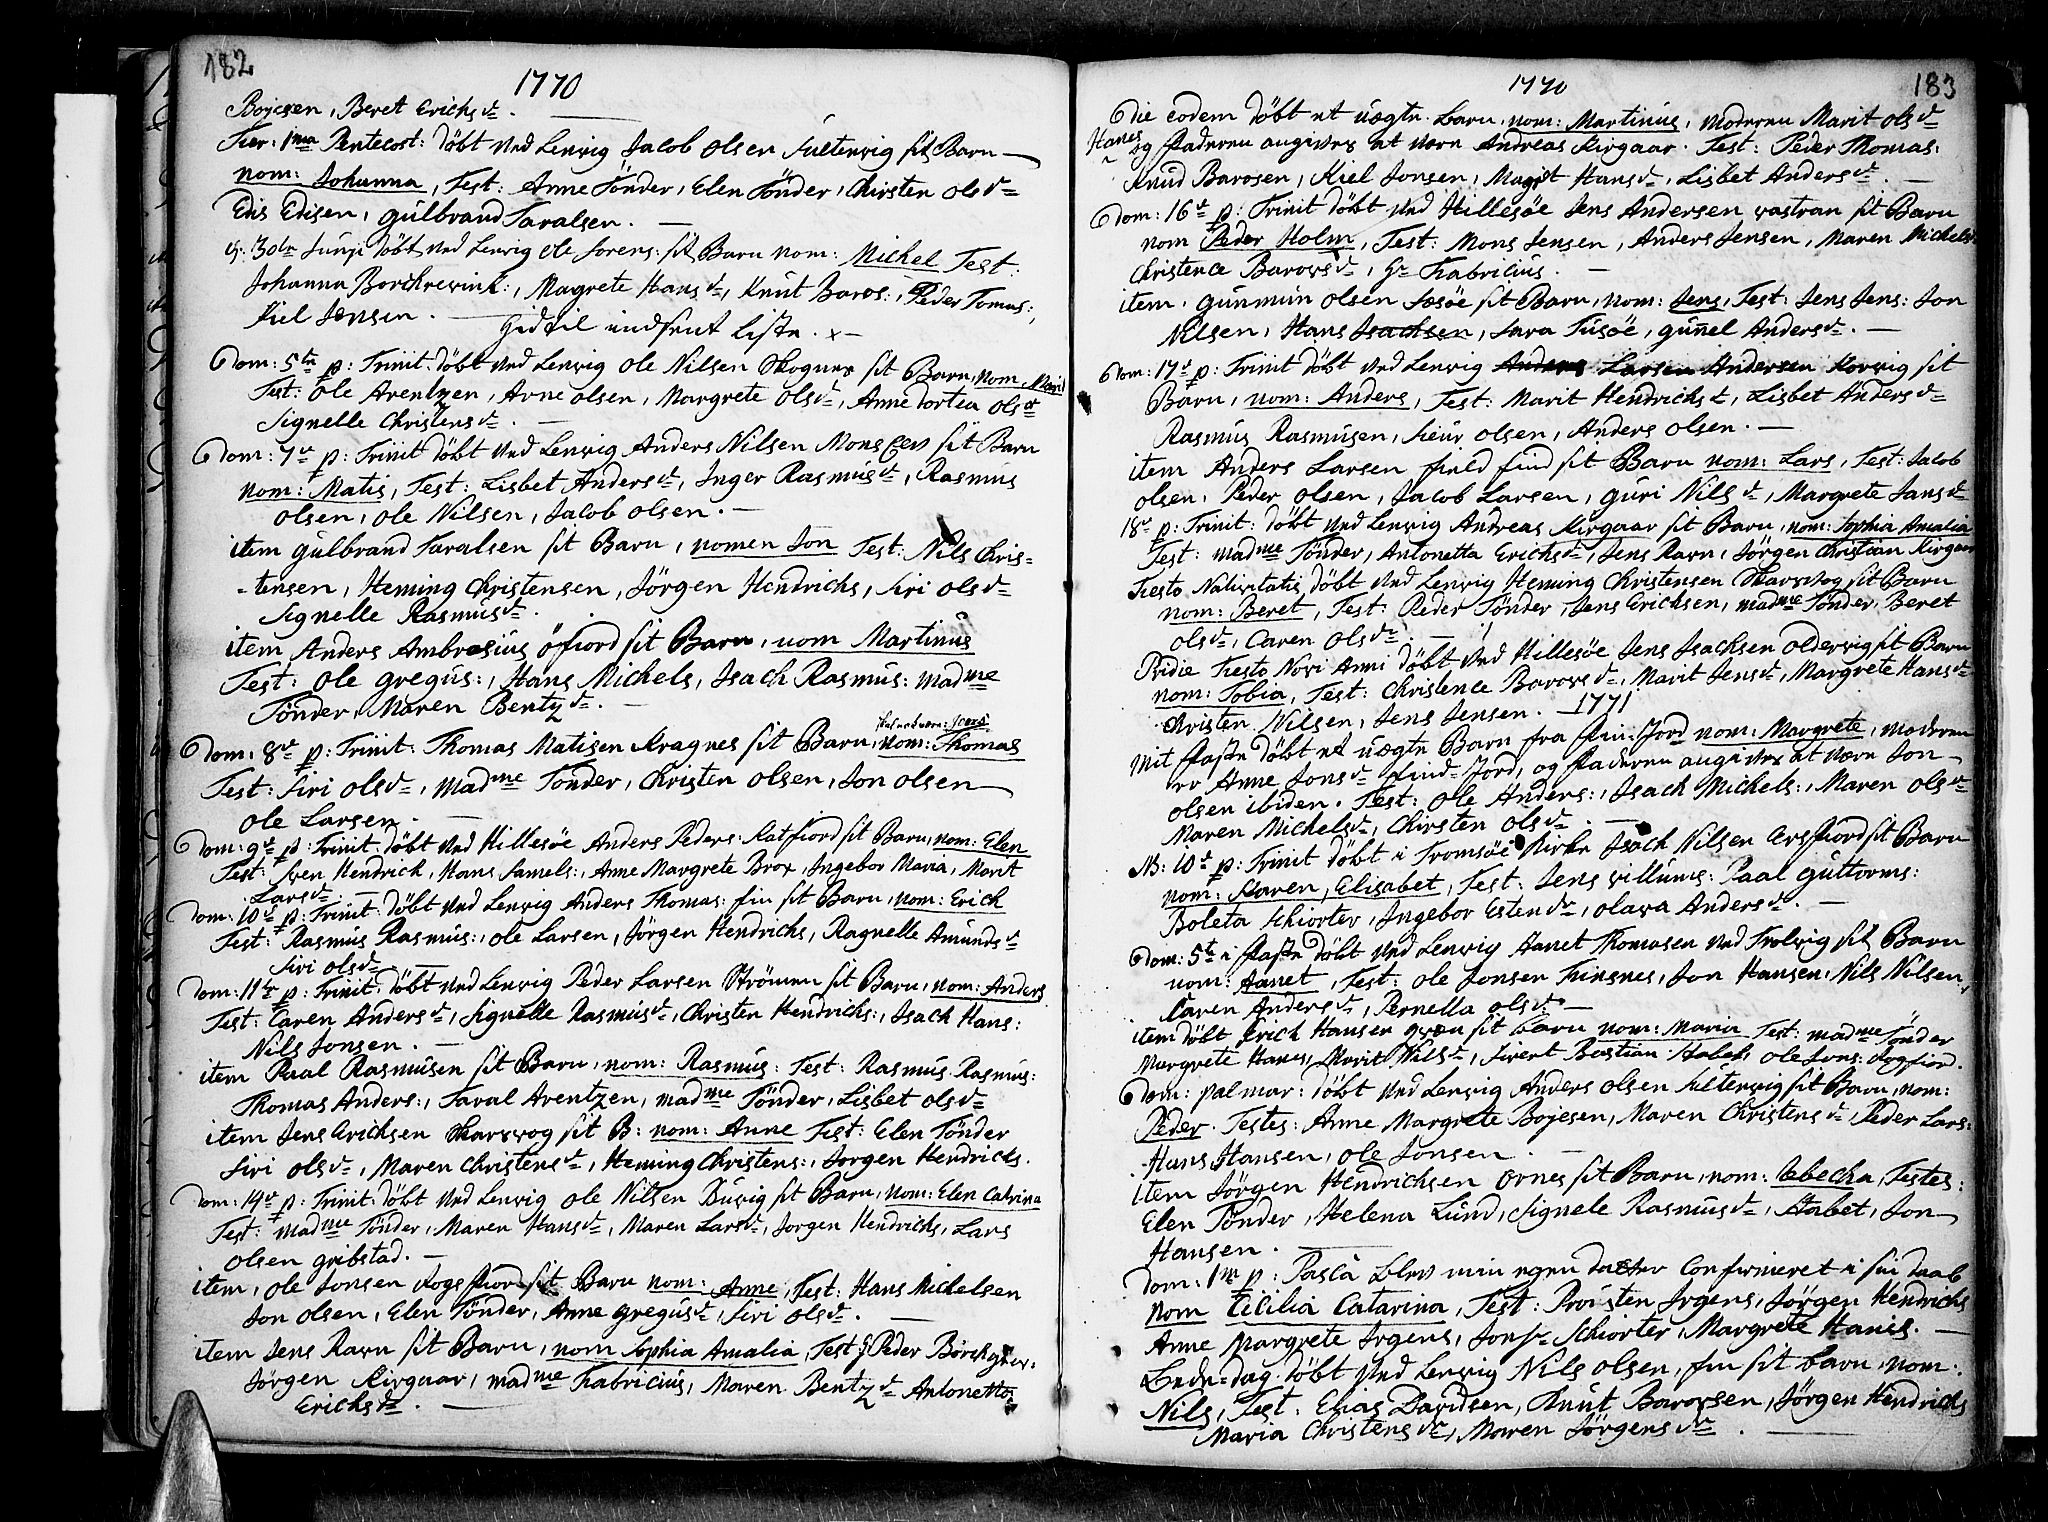 182
1770
Bojesen, Beret Erichsd.
Fier: 1ma Pentecost: döbt ved Lenvig Jacob Olsen Sultenvig sit Barn
nom: Johanna, Test: Anne Tönder, Elen Tönder, Chirsten Olsd
Edis Edisen, Gulbrand Taralsen.
30de Junji döbt ved Lenvig Ole Sorens: sit Barn nom: Michel Test:
Johanna Borchrevink:, Magrete Hansd, Knut Baros:, Peder Tomas:,
Kiel Jensen. Hidtil indsent Liste. x
Dom: 5te p: Trinit: döbt ved Lenvig Ole Nilsen Skognes sit Barn, nom. Marit
Test: Ole Arentzen, Arne Olsen, Margrete Olsd, Anne Dortea Olsd
Signelle Christensd.
Dom: 7de p: Trinit döbt ved Lenvig Anders Nilsen Monseen sit Barn
nom: Matis, Test: Lisbet Andersd, Inger Rasmusd, Rasmus
Olsen, Ole Nilsen, Jacob Olsen.
item Gulbrand Taralsen sit Barn, nomen Jon Test: Nils Chris-
-tensen, Heming Christensen, Jörgen Hendrichs, Siri Olsd
Signelle Rasmusd.
item Anders Ambrosius Öfiord sit Barn, nom Martinus
Test: Ole Gregus:, Hans Michels, Isach Rasmus: madme
Tönder, Maren Bentzd.
Dom: 8de p: Trinit: Thomas Matisen Kragnes sit Barn, nom: Thomas
Test: Siri Olsd, madme Tonder, Christen Olsen, Jon Olsen
Ole Larsen.
Dom: 9de p: Trinit: döbt ved Hillesöe Anders Peders: Katfiord sit Barn, nom: Elen
Test: Sven Hendrich, Hans Samels:, Anne Margrete Brox, Ingebor Maria, Marit
Larsd.
Dom: 10de p: Trinit: döbt ved Lenvig Anders Thomas: fin sit Barn, nom: Erich
Test: Rasmus Rasmus:, Ole Larsen, Jörgen Hendrichs, Ragnelle Amundsd
Siri Olsd
Dom: 11te p: Trinit: döbt ved Lenvig Peder Larsen Strömen sit Barn, nom: Anders
Test: Caren Andersd, Signelle Rasmusd, Christen Hendrichs:, Isach Hans:
Nils Jonsen.
item Paal Rasmusen sit Barn, nom: Rasmus: Test: Rasmus Rasmus:
Thomas Anders:, Taval Arentzen, madme Tönder, Lisbet Olsd
item Jens Erichsen Skarsvog sit B: nom: Anne Test: Elen Tönder
Siri Olsd, Maren Christensd, Heming Christens:, Jorgen Hendrichs.
Dom: 14de p: Trinit: döbt ved Lenvig Ole Nilsen Buvig sit Barn, nom: Elen Catrina
Test: madme Tönder, Maren Hansd, Maren Larsd, Jorgen Hendrichs, Lars
Olsen Gribstad.
item, Ole Jonsen Rogsfiord sit Barn nom: Anne, Test: Hans Michelsen
Jon Olsen, Elen Tönder, Anne Gregusd, Siri Olsd.
item Jens Ravn sit Barn, nom Sophia Amalia, Test: Peder Börchgrev:
Jörgen Kirgaar, madme Fabricius, Maren Bentzd Antonetta
Erichsd.
1770
183
Die eodem döbt et uægte Barn, nom: Martinus, moderen Marit Olsd
Hanes
og Faderen angives at være Andreas Kirgaar. Test: Peder Thomas:
Knud Barosen, Kiel Jonsen, Magrt Hansd, Lisbet Andersd.
Dom: 16de p: Trinit döbt ved Hillesöe Jens Andersen Vastran sit Barn
nom Peder Holm, Test: Mons Jensen, Anders Jensen, Maren Michelsd
Christence Barosd, Hr Fabricius.
item. Gunmun Olsen Sæsöe sit Barn, nom: Jens, Test: Jens Jens: Jon
Nilsen, Hans Isachsen, Sara Tusöe, Gunel Andersd.
Dom: 17de p: Trinit döbt ved Lenvig Anders Larsen Andersen Korsvig sit
Barn, nom: Anders, Test: Marit Hendrichsd, Lisbet Andersd
Rasmus Rasmusen, Siur Olsen, Anders Olsen.
item Anders Larsen field find sit Barn nom: Lars, Test: Jacob
Olsen, Peder Olsen, Jacob Larsen, Guri Nilsd, Margrete Jansd
18de p: Trinit: döbt ved Lenvig Andreas Kirgaar sit Barn, nom: Sophia Amalia
Test: madme Tönder, Antonetta Erichsd, Jens Ravn, Jörgen Christian Kirgaar
Festo Nativitatis döbt ved Lenvig Heming Christensen Skarsvog sit Barn
nom: Beret, Test: Peder Tönder, Jens Erichsen, madme Tönder, Beret
Olsd, Caren Olsd.
Pridie Festo Novi Anni döbt ved Hillesöe Jens Isachsen Oldervig sit Barn
nom: Tobia, Test: Christence Barosd, Marit Jensd, Margrete Hansd
Christen Nilsen, Jens Jensen. 1771
Mit faste döbt et uægte Barn fra fin-Jord nom: Margrete, moderen
er Anne Jonsd find-Jord, og faderen angives at være Jon
Olsen ibiden. Test: Ole Anders:, Isach Michels:, Maren Olsd
Maren Michelsd, Chirsten Olsd.
NB: 10de p: Trinit döbt i Tromsöe Kirke Isach Nilsen Ersfiord sit Barn
nom: Karen, Elisabet, Test: Jens Villums: Paal Guttorms:
Boleta Schiorter, Ingebor Estensd, Olava Andersd.
Dom: 5te i faste döbt ved Lenvig Hanet Thomasen ved Trolvig sit Barn
nom: Hanet, Test: Ole Jonsen Finsnes, Jon Hansen, Nils Nilsen
Caren Andersd, Pernella Olsd.
item döbt Erich Hansen Græn sit Barn nom: Maria Test: madme Tönder
Margrete Hanes, Marit Nilsd, Sivert Bastian Stabel, Ole Jons: Rogfiord.
Dom: Palmar: döbt ved Lenvig Anders Olsen Sultenvig sit Barn, nom:
Peder. Testes: Anne Margrete Bojesen, Maren Christensd, Peder Lars:
Hans Hansen, Ole Jonsen.
item Jörgen Hendrichsen Ornes sit Barn, nom: Rebecha, Testes:
Elen Tönder, Helena Lund, Signele Rasmusd, Stabet, Jon
Hansen.
Dom: 1m p: Pasca blev min egen datter Confirmeret i sin daab
nom Cicilia Catarina, Test: Proisten Irgens, Jörgen Hendrichs
Anne Margrete Irgens, Jonsr Schiorter, Margrete Hanes.
Bede-dag döbt ved Lenvig Nils Olsen, fin sit barn, nom:
Nils, Test: Elias Davidsen, Knut Baroxsen, Jörgen Hendrichs
Maria Christensd, Maren Jörgensd.